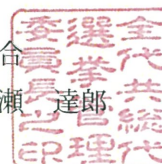 合
瀬 達郎
全代共総
選挙管理
委員長之印